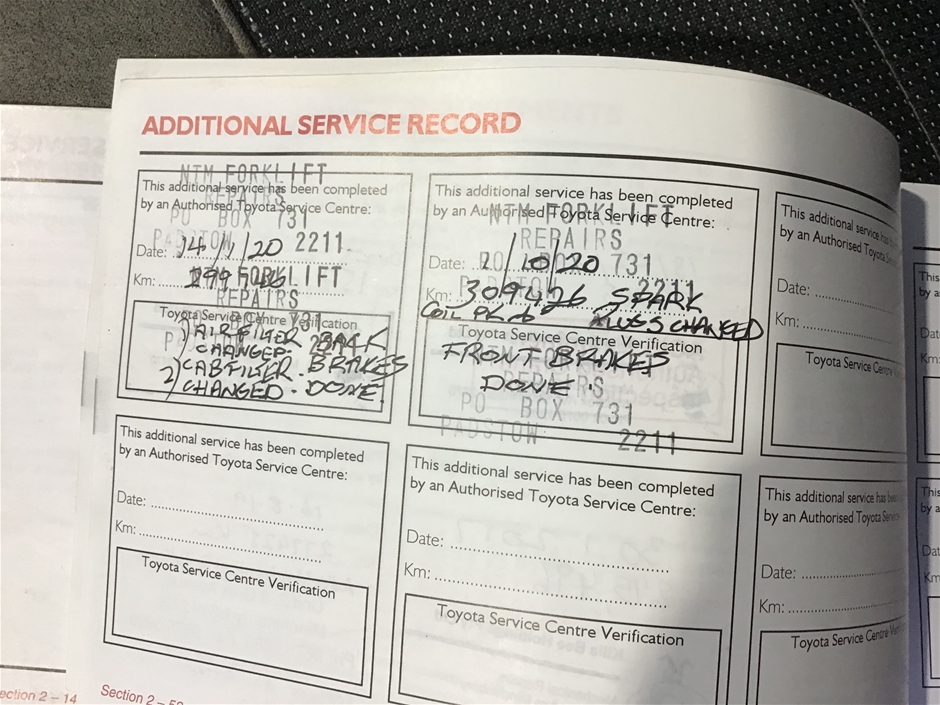 ADDITIONAL SERVICE RECORD
NTM FORKLIFT
This additional service has been completed
REPAIRS
by an Authorised Toyota Service Centre:
PO BOX 731
PADSTOW 2211
Date: 14/1/20
FORKLIFT
Km:
REPAIRS
Toyota Service Centre Verification
1) AIR FILTER BACK
CHANGED.
2) CABFILTER. BRAKES
CHANGED. DONE.
This additional service has been completed
by an Authorised Toyota Service Centre:
NTM FORKLIFT
REPAIRS
731
Date: 20/10/20
2211
Km: 309426 SPARK
COIL PLUGS CHANGED
Toyota Service Centre Verification
FRONT BRAKES
DONE.
REPAIRS
PO BOX 731
PADSTOW 2211
This additional service has
by an Authorised Toyota
Date:
Km:
Toyota Service
This additional service has been completed
by an Authorised Toyota Service Centre:
Date:
Km:
Toyota Service Centre Verification
This additional service has been completed
by an Authorised Toyota Service Centre:
Date:
Km:
Toyota Service Centre Verification
This additional service has
by an Authorised Toyota
Date:
Km:
Toyota Service Centre
This
Km:
This
Km:
ection 2 – 14
Section 2 –